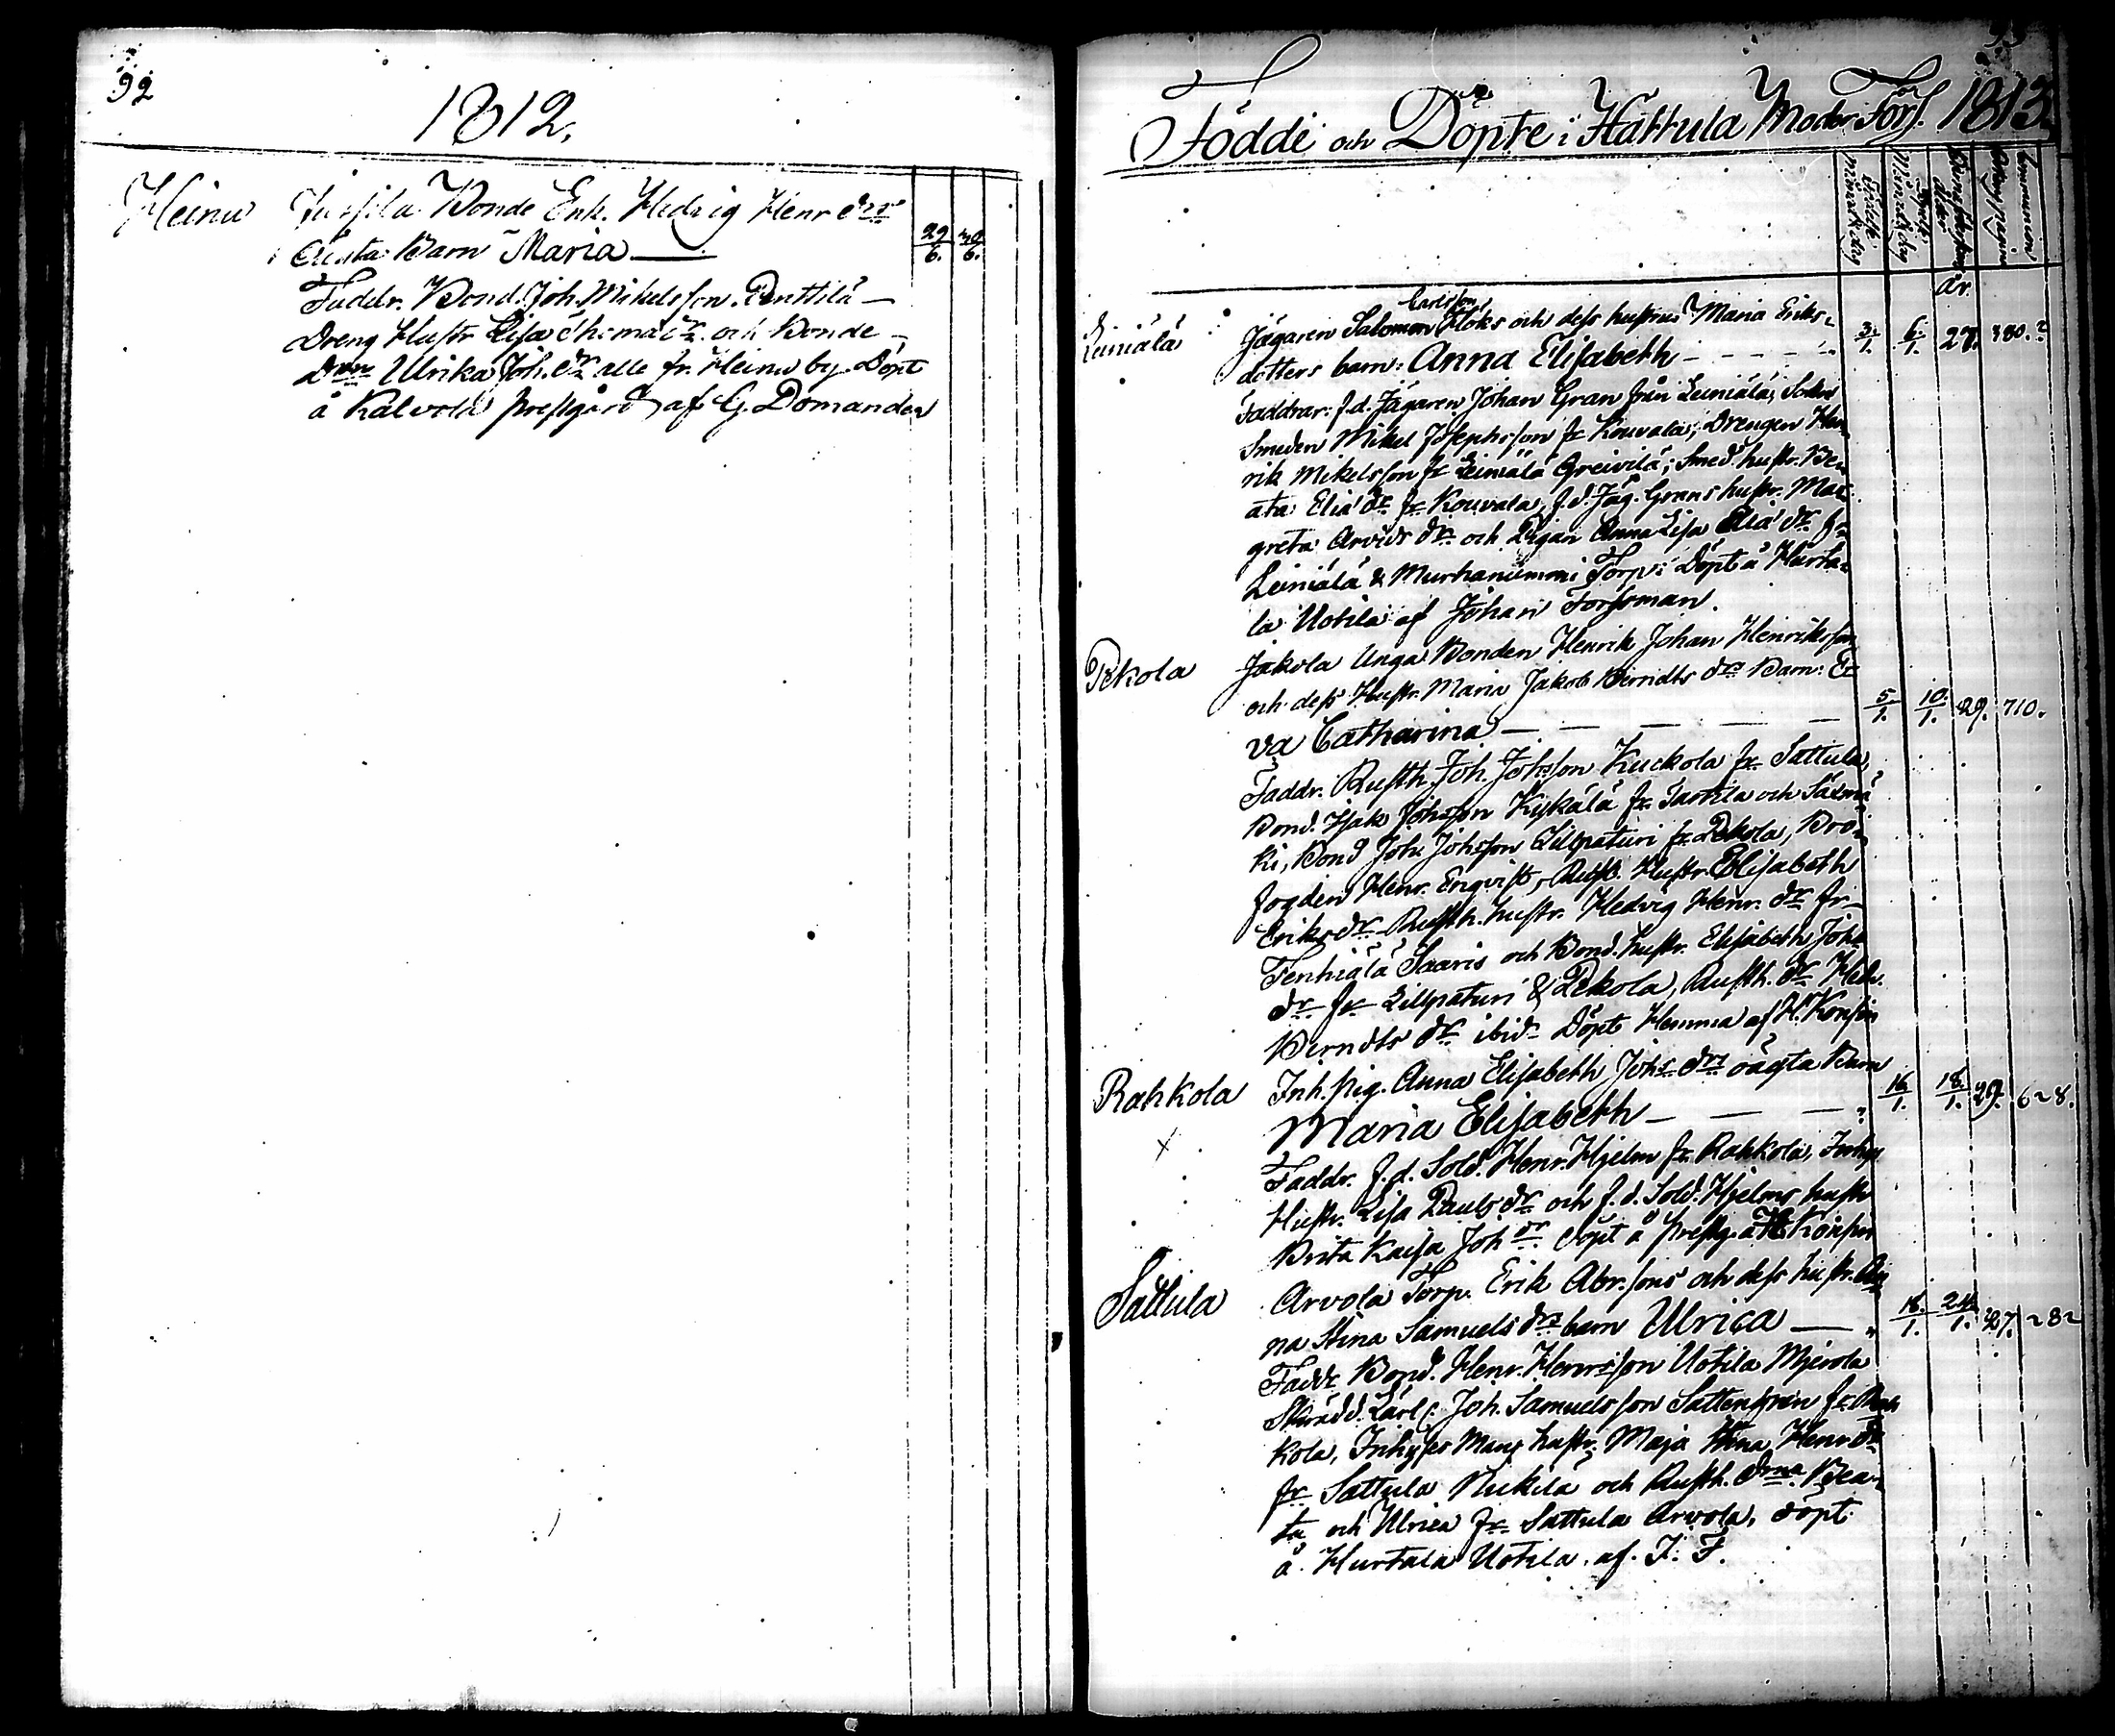 92
1812.
Heinu Jussila Bonde Enk. Hedvig Henr drs
Barn Maria
29/6. 30/6.
Faddr. Bond. Joh. Mikelsson Penttilä
Dreng Hustr Lisa och Bonde
Ulrika Joh. dr alle fr. Heinu by. Döpt
å Kalvola prestgård af G. Domander
93
Födde och Döpte i Hattula Moder Förs. 1813.
År
Leiniälä Jägaren Salomon Carlsson Flöks och dess hustrus Maria Eriks-
dotters barn: Anna Elisabeth 3/1. 6/1. 27. 380.
Faddrar: f.d. Jägaren Johan Gran från Leiniälä, Sokne
Smeden Mikel Josephsson fr Kouvala; Drengen Hen
rik Mikelsson fr Leiniälä Greivilä; Smed. hustr. Be
ata Elia dr fr Kouvala, f.d. Jäg. Grans hustr. Mar-
greta Arvids dr och Pigan Anna Lisa Elia dr fr
Leiniälä & Murhanummi Torp: Döpt å Hurta-
la Uotila af Johan Forssman.
Pekola Jakola Unga Bonden Henrik Johan Henriksson
och dess Hustr. Maria Jakob Berndts drs Barn: E-
va Catharina 5/1. 10/1. 29. 710.
Faddr. Rusth. Joh. Johsson Kuckola fr Sattula,
Bond. Isak Johsson Kiskälä fr. och Säxmä
ki, Bond Joh. Johsson Lillpaturi fr Pekola, Bro-
fogden Henr. Enqvist, Rusth. Hustr. Elisabeth
Eriks dr Rusth. hustr. Hedvig Henr. dr fr
Tenhiälä Saaris och Bond. hustr. Elisabeth Joh
dr fr Lillpaturi & Pekola, Rusth. dr Hedv.
Berndts dr ibid. Döpt Hemma af H. Konsin
Rahkola Inh. pig. Anna Elisabeth Johs drs oägta Barn
Maria Elisabeth 16/1. 18/1. 29. 628.
X
Faddr. f.d. Sold. Henr. Hjelm fr Rahkola, Inhys
Hustr. Lisa Pauls dr och f.d. Sold. Hjelms hustr
Brita Kaisa Joh dr. Döpt å prestg. af H Konsin
Sattula Arvola Torp. Erik Abr.sons och dess hustr. An
na Stina Samuels drs barn Ulrica 18/1. 24/1. 27. 282
Faddr Bond. Henr. Henrsson Uotila Mjerola
Skrädd. Lärl: Joh. Samuelsson Sattengren fr
kola, Inhyses Mans hustr Maja Stina Henr dr
fr Sattula Nickilä och Rusth. drna Bea-
ta och Ulrica fr Sattula Arvola, döpt
å Hurtala Uotila. af J. F.